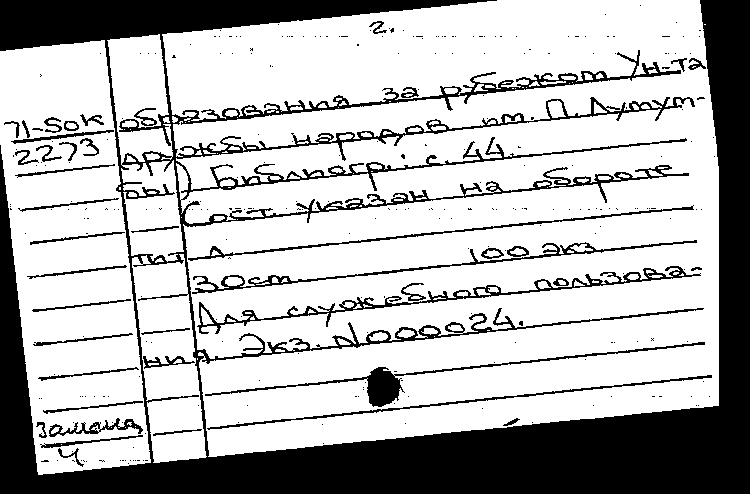 2.
71-5ок образования за рубежом Ун-та
2273 дружбы народов им. П. Лумум-
бы) Библиогр.: с. 44.
Сост. указан на обороте
тит л
30 см 100 экз
Для служебного пользова-
ния. Экз. N000024.
замена
4